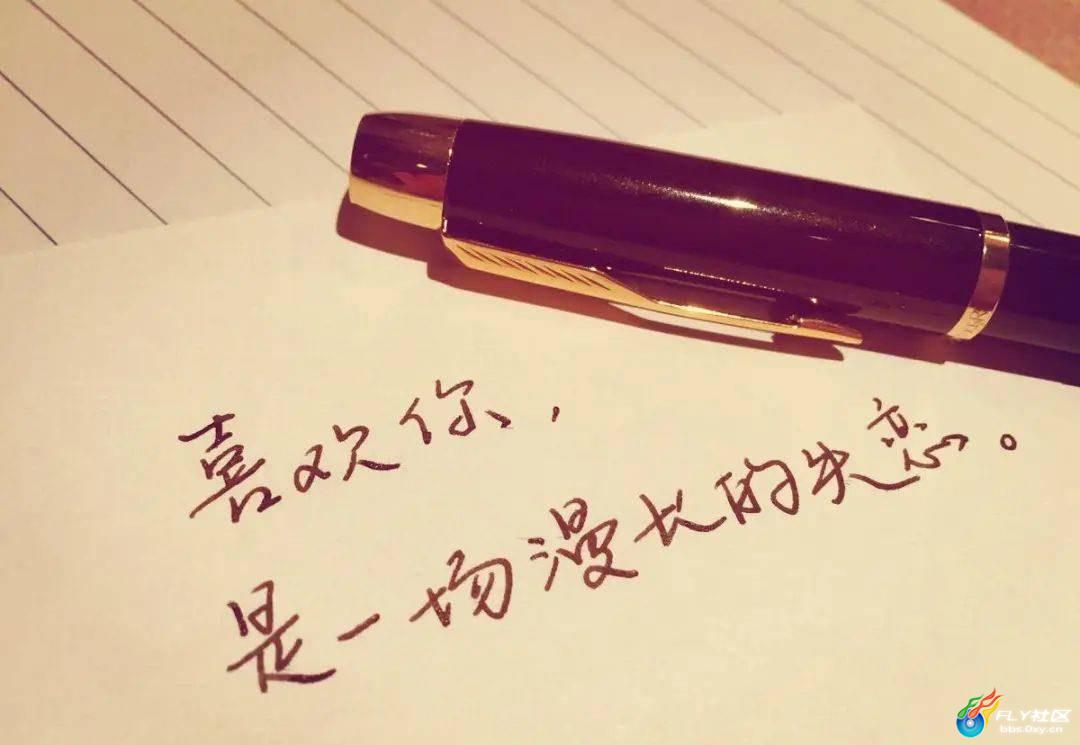 喜欢你，
是一场漫长的失恋。
FLY社区
bbs.0xy.cn